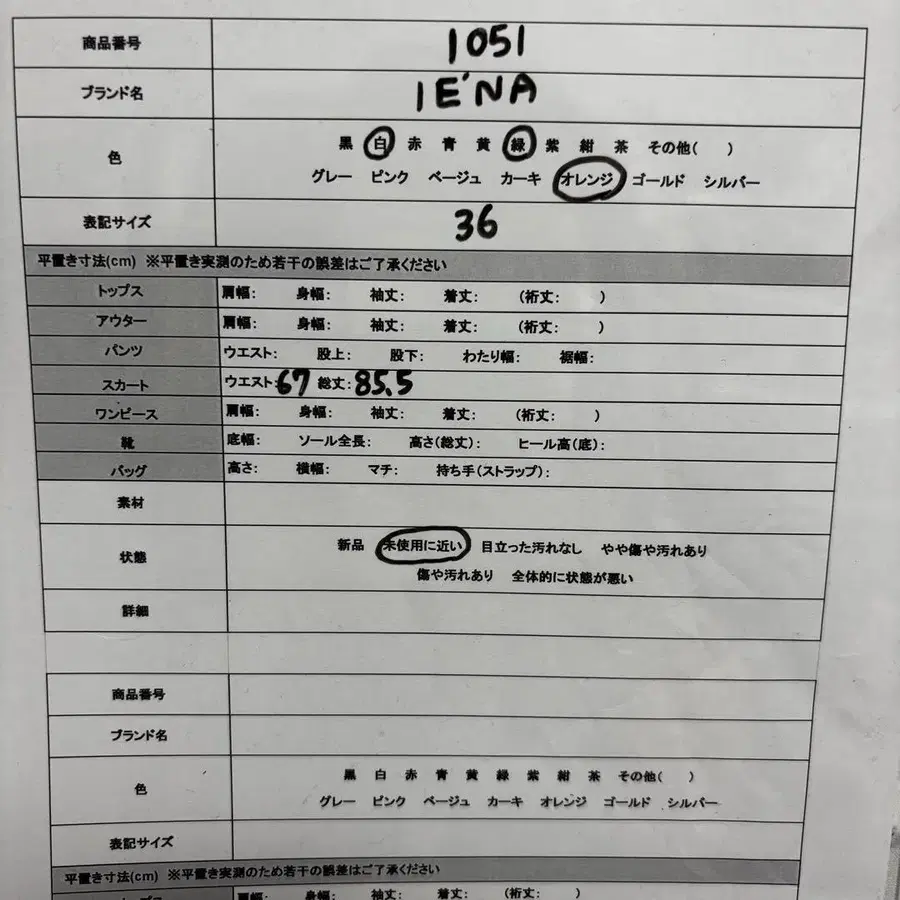 商品番号 1051
ブランド名 IE'NA
色 黒 白 赤 青 黄 緑 紫 紺 茶 その他( )
グレー ピンク ベージュ カーキ オレンジ ゴールド シルバー
表記サイズ 36
平置き寸法(cm) ※平置き実測のため若干の誤差はご了承ください
トップス 肩幅: 身幅: 袖丈: 着丈: (裄丈: )
アウター 肩幅: 身幅: 袖丈: 着丈: (裄丈: )
パンツ ウエスト: 股上: 股下: わたり幅: 裾幅:
スカート ウエスト:67 総丈:85.5
ワンピース 肩幅: 身幅: 袖丈: 着丈: (裄丈: )
靴 底幅: ソール全長: 高さ(総丈): ヒール高(底):
バッグ 高さ: 横幅: マチ: 持ち手(ストラップ):
素材
状態 新品 未使用に近い 目立った汚れなし やや傷や汚れあり
傷や汚れあり 全体的に状態が悪い
詳細
商品番号
ブランド名
色 黒 白 赤 青 黄 緑 紫 紺 茶 その他( )
グレー ピンク ベージュ カーキ オレンジ ゴールド シルバー
表記サイズ
平置き寸法(cm) ※平置き実測のため若干の誤差はご了承ください
肩幅: 身幅: 袖丈: 着丈: (裄丈: )